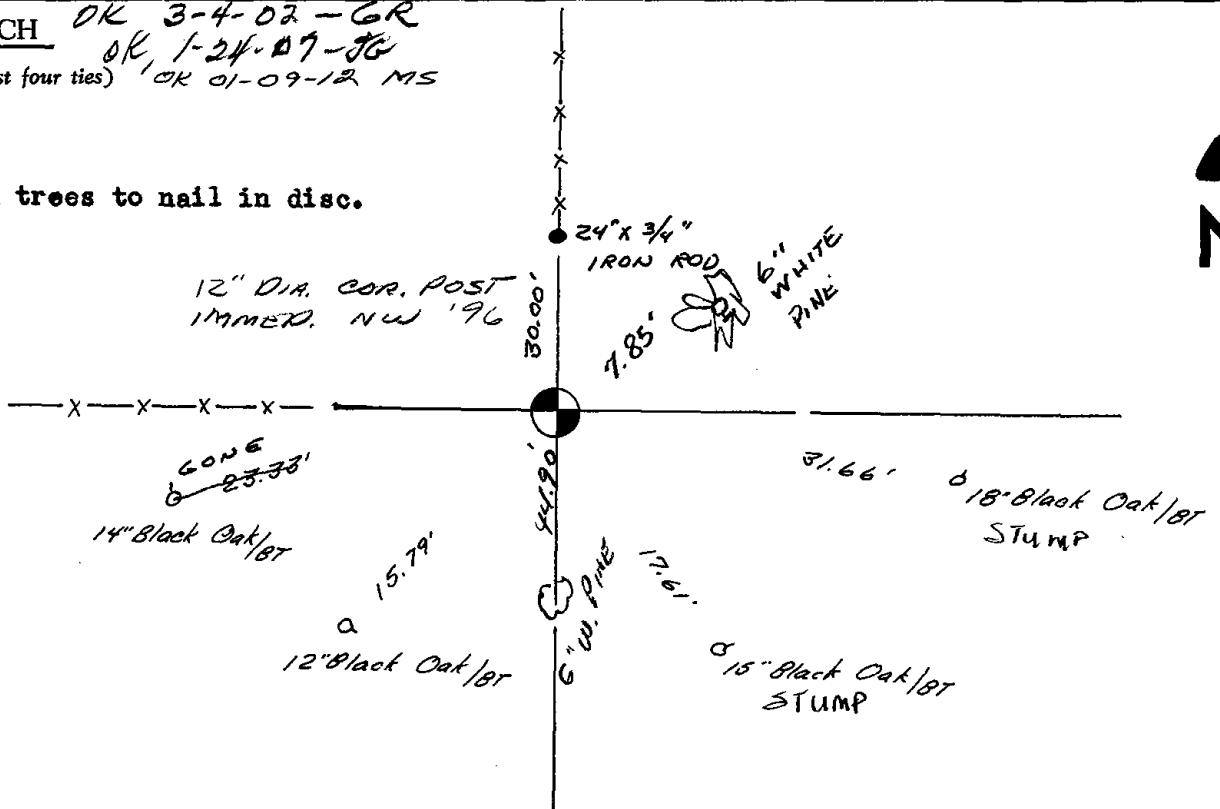 CH OK 3-4-02 - GR
OK 1-24-07-JG
st four ties) OK 01-09-12 MS
trees to nail in disc.
N
24" x 3/4"
IRON ROD
6"
WHITE
PINE
12" DIA. COR. POST
IMMED. NW '96
30.00'
7.85'
GONE
23.33'
14" Black Oak/BT
44.90'
31.66'
18" Black Oak/BT
STUMP
15.79'
12" Black Oak/BT
6" W. PINE
17.61'
15" Black Oak/BT
STUMP